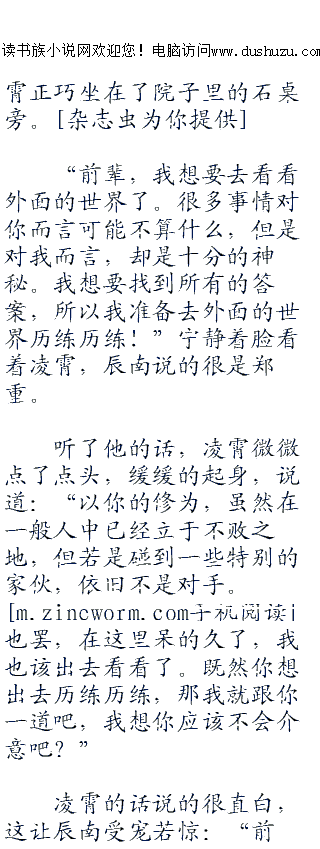 读书族小说网欢迎您！电脑访问www.dushuzu.com
霄正巧坐在了院子里的石桌
旁。[杂志虫为你提供]
“前辈，我想要去看看
外面的世界了。很多事情对
你而言可能不算什么，但是
对我而言，却是十分的神
秘。我想要找到所有的答
案，所以我准备去外面的世
界历练历练！”宁静着脸看
着凌霄，辰南说的很是郑
重。
听了他的话，凌霄微微
点了点头，缓缓的起身，说
道：“以你的修为，虽然在
一般人中已经立于不败之
地，但若是碰到一些特别的
家伙，依旧不是对手。
[m.zincworm.com手机阅读]
也罢，在这里呆的久了，我
也该出去看看了。既然你想
出去历练历练，那我就跟你
一道吧，我想你应该不会介
意吧？”
凌霄的话说的很直白，
这让辰南受宠若惊：“前